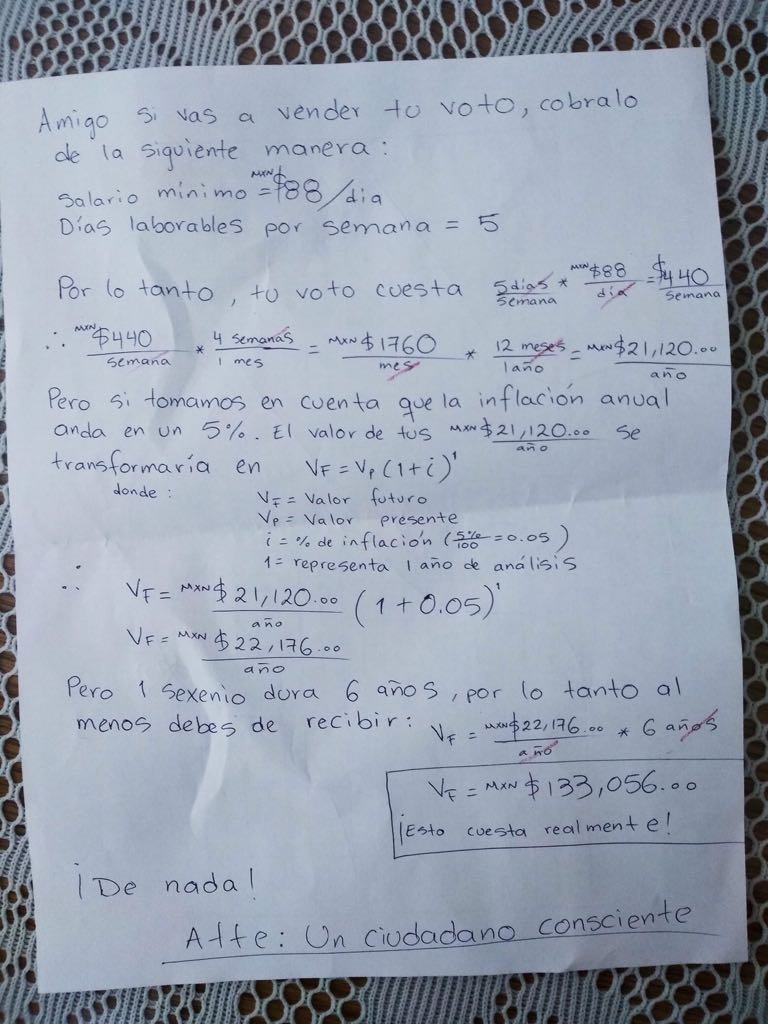 Amigo si vas a vender tu voto, cobralo
de la siguiente manera:
Salario mínimo = MXN $88/día
Días laborables por semana = 5
Por lo tanto, tu voto cuesta 5 días/semana * MXN $88/día = $440/semana
∴ MXN $440/semana * 4 semanas/1 mes = MXN $1760/mes * 12 meses/1 año = MXN $21,120.00/año
Pero si tomamos en cuenta que la inflación anual
anda en un 5%. El valor de tus MXN $21,120.00/año se
transformaría en VF = VP (1+i)¹
donde:
VF = Valor futuro
VP = Valor presente
i = % de inflación (5%/100 = 0.05)
1 = representa 1 año de análisis
∴ VF = MXN $21,120.00/año (1+0.05)¹
VF = MXN $22,176.00/año
Pero 1 sexenio dura 6 años, por lo tanto al
menos debes de recibir: VF = MXN $22,176.00/año * 6 años
VF = MXN $133,056.00
¡Esto cuesta realmente!
¡De nada!
Atte: Un ciudadano consciente